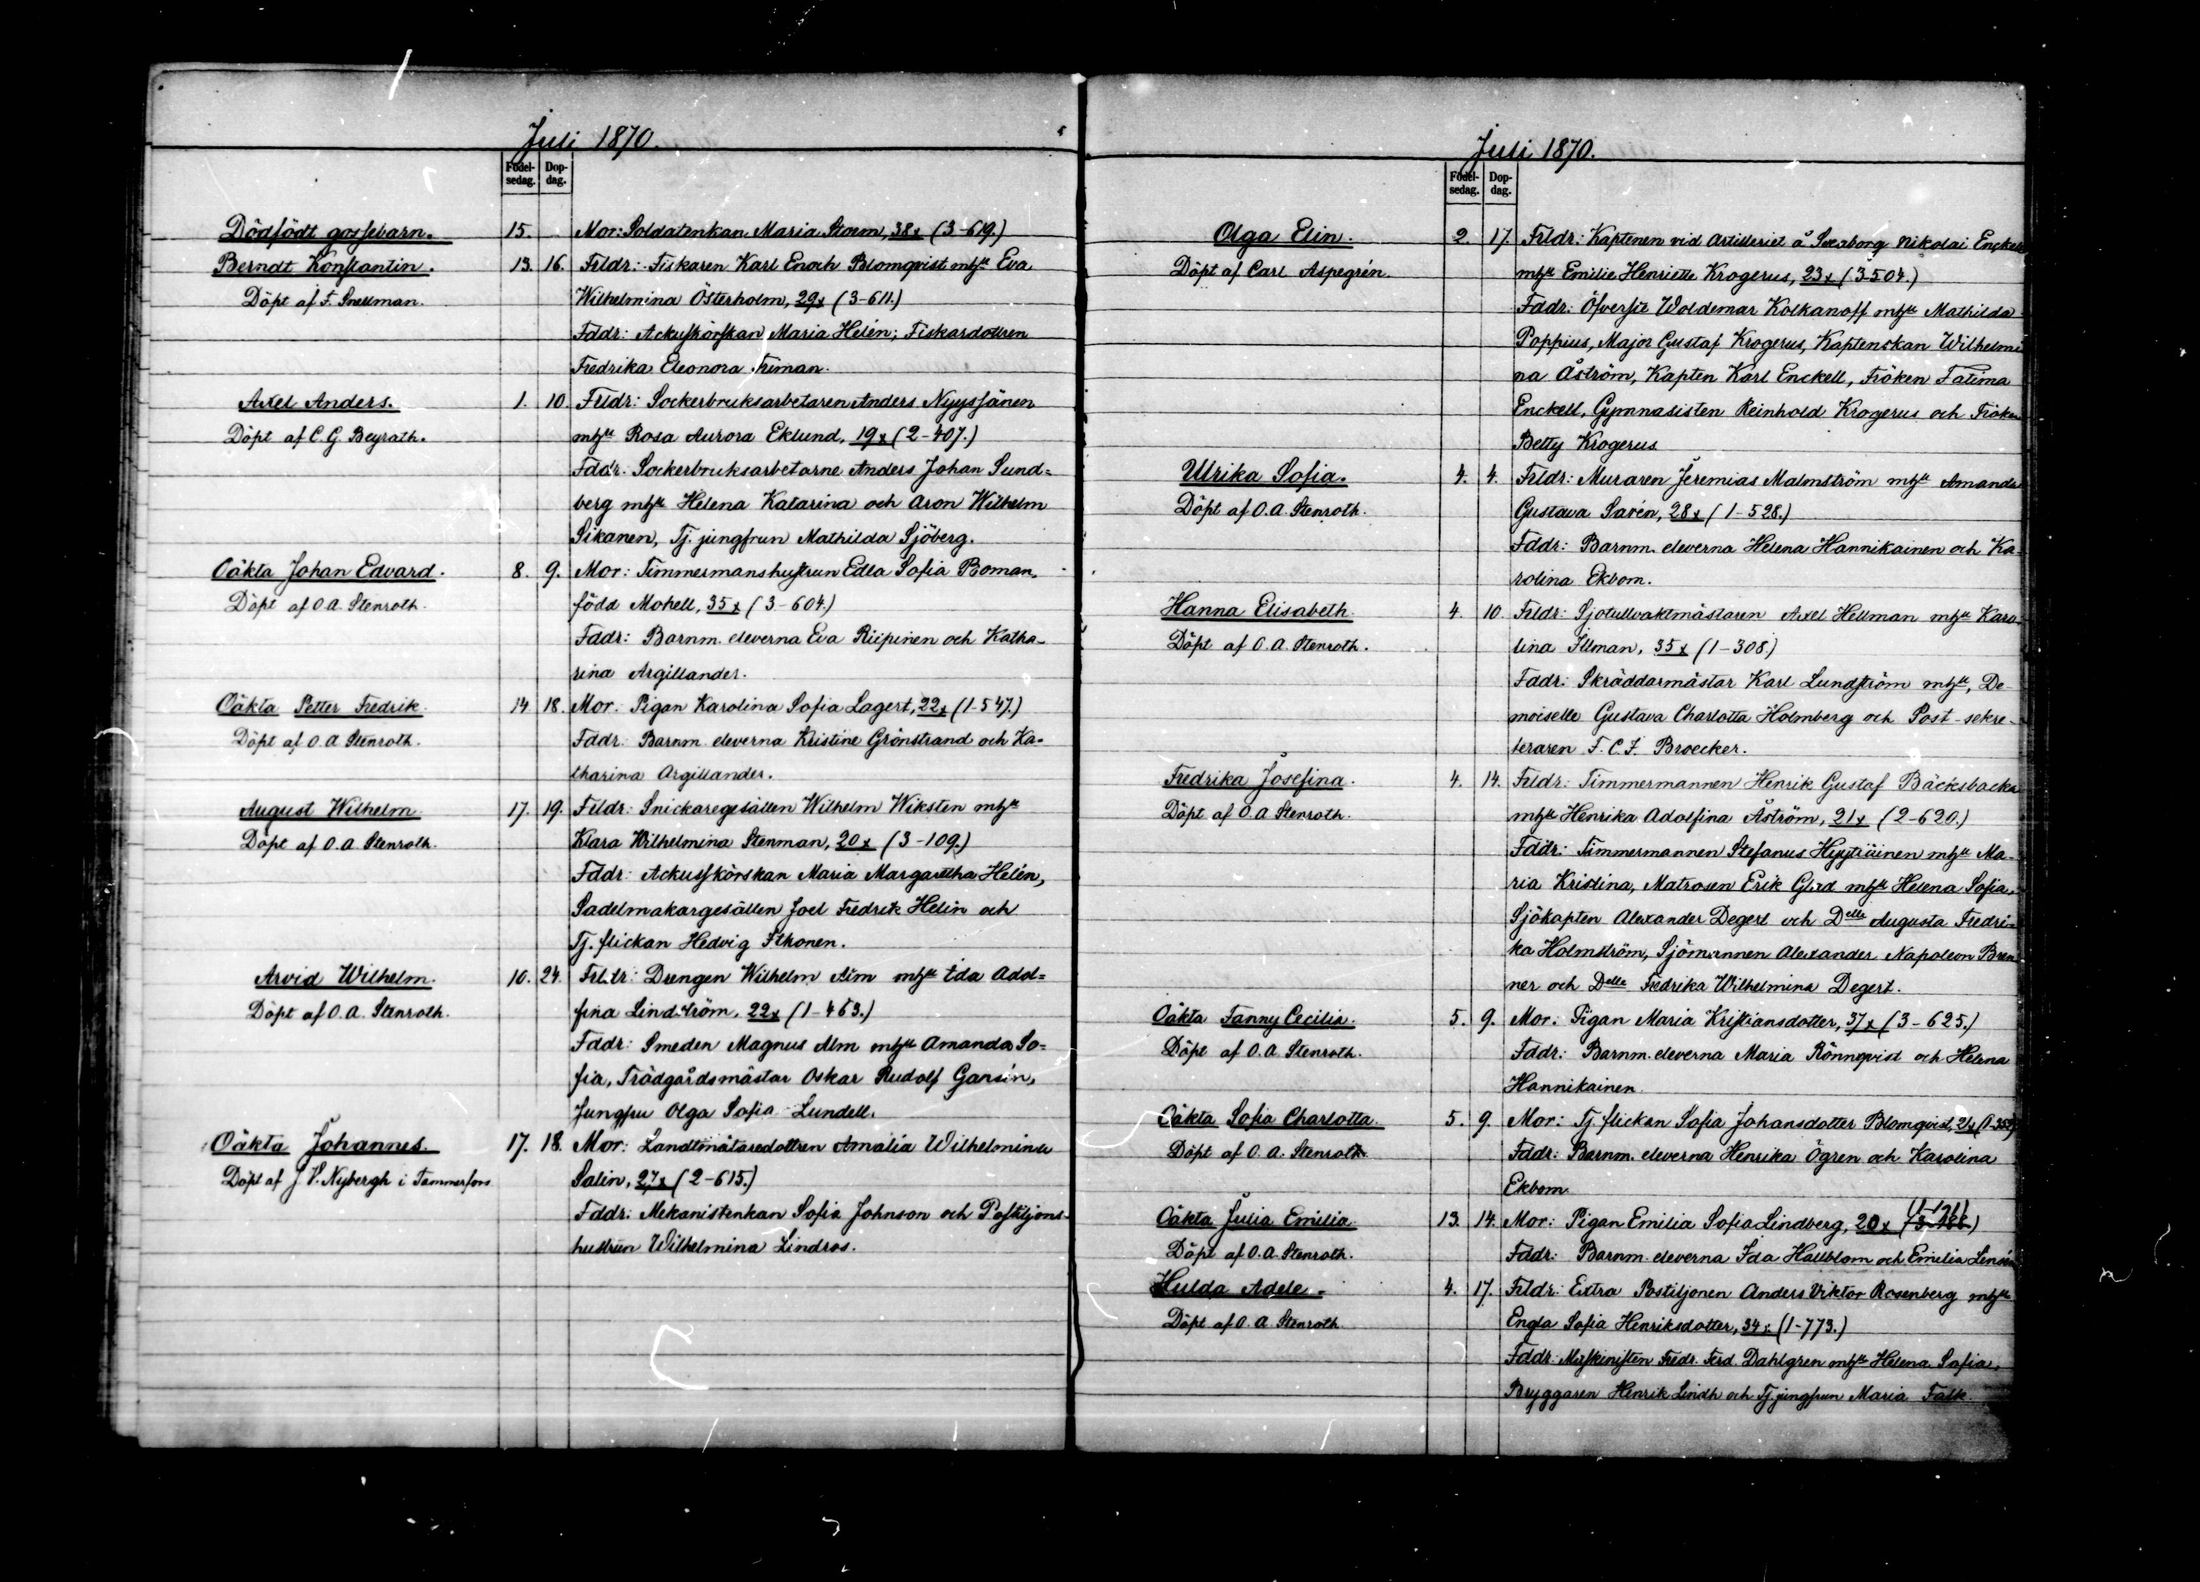 Juli 1870.
Födel-
sedag.
Dop-
dag.
Dödfödt gossebarn. 15. Mor: Soldatenkan Maria Storm, 38 x (3-619.)
Berndt Konstantin. 13. 16. Frldr: Fiskaren Karl Enoch Blomqvist mhu Eva
Döpt af F. Snellman. Wilhelmina Österholm, 29 x (3-611.)
Fddr: Ackuskörskan Maria Helén; Fiskardottren
Fredrika Eleonora Friman.
Axel Anders. 1. 10. Frldr: Sockerbruksarbetaren Anders Nyyssänen
Döpt af C. G. Beyrath. mhu Rosa Aurora Eklund, 19 x (2-407.)
Fddr: Sockerbruksarbetarne Anders Johan Sund=
berg mhu Helena Katarina och Aron Wilhelm
Sikanen, Tj. jungfrun Mathilda Sjöberg.
Oäkta Johan Edvard. 8. 9. Mor: Timmermanshustrun Edla Sofia Roman,
Döpt af O. A. Stenroth. född Mohell, 35 x (3-604.)
Fddr: Barnm. eleverna Eva Riipinen och Katha-
rina Argillander.
Oäkta Petter Fredrik. 14 18. Mor: Pigan Karolina Sofia Lagert, 22 x (1-547.)
Döpt af O. A. Stenroth. Fddr: Barnm. eleverna Kristine Grönstrand och Ka=
tharina Argillander.
August Wilhelm. 17. 19. Frldr: Snickaregesällen Wilhelm Wiksten mhu
Döpt af O. A. Stenroth. Klara Wilhelmina Stenman, 20 x (3-109.)
Fddr: Ackusskörskan Maria Margaretha Helén,
Sadelmakargesällen Joel Fredrik Helin och
Tj. flickan Hedvig Itkonen.
Arvid Wilhelm. 10. 24. Frldr: Drengen Wilhelm Alm mhu Ida Adol=
Döpt af O. A. Stenroth. fina Lindström, 22 x (1-463.)
Fddr: Smeden Magnus Alm mhu Amanda So=
fia, Trädgårdsmästar Oskar Rudolf Gansén,
Jungfru Olga Sofia Lundell.
Oäkta Johannes. 17. 18. Mor: Landtmätaredottren Amalia Wilhelmina
Döpt af J. V. Nybergh i Tammerfors Salin, 27 x (2-615.)
Fddr: Mekanistenkan Sofia Johnson och Postiljons-
hustrun Wilhelmina Lindros.
Juli 1870.
Födel-
sedag.
Dop-
dag.
Olga Elin. 2. 17. Frldr: Kaptenen vid Artilleriet å Sveaborg Nikolai Enckell
Döpt af Carl Aspegrén. mhu Emilie Henriette Krogerus, 23 x (3-504.)
Fddr: Öfverste Woldemar Kolkanoff mhu Mathilda
Poppius, Major Gustaf Krogerus, Kaptenskan Wilhelmi
na Åström, Kapten Karl Enckell, Fröken Fatima
Enckell, Gymnasisten Reinhold Krogerus och Fröken
Betty Krogerus
Ulrika Sofia. 4. 4. Frldr: Muraren Jeremias Malmström mhu Amanda
Döpt af O. A. Stenroth. Gustava Savén, 28 x (1-528.)
Fddr: Barnm. eleverna Helena Hannikainen och Ka-
rolina Ekbom.
Hanna Elisabeth. 4. 10. Frldr: Sjotullvaktmästaren Axel Hellman mhu Karo
Döpt af O. A. Stenroth. lina Illman, 35 x (1-308.)
Fddr: Skräddarmästar Karl Lundström mhu, De-
moiselle Gustava Charlotta Holmberg och Post-sekre-
teraren F. C. F. Broecker.
Fredrika Josefina. 4. 14. Frldr: Timmermannen Henrik Gustaf Bäcksbacka
Döpt af O. A. Stenroth. mhu Henrika Adolfina Åström, 21 x (2-620.)
Fddr: Timmermannen Stefanus Hyytiäinen mhu Ma-
ria Kristina, Matrosen Erik Glad mhu Helena Sofia,
Sjökapten Alexander Degert och Delle Augusta Fredri-
ka Holmström, Sjömannen Alexander Napoleon Bren
ner och Delle Fredrika Wilhelmina Degert.
Oäkta Fanny Cecilia. 5. 9. Mor: Pigan Maria Kristiansdotter, 37 x (3-625.)
Döpt af O. A. Stenroth. Fddr: Barnm. eleverna Maria Rönnqvist och Helena
Hannikainen.
Oäkta Sofia Charlotta. 5. 9 Mor: Tj. flickan Sofia Johansdotter Blomqvist,
Döpt af O. A. Stenroth. Fddr: Barnm. eleverna Henrika Ögren och Karolina
Ekbom.
Oäkta Julia Emilia. 13. 14. Mor: Pigan Emilia Sofia Lindberg, 20 x
Döpt af O. A. Stenroth. Fddr: Barnm. eleverna Ida Hallblom och Emilia
Hulda Adele. 4. 17. Frldr: Extra Postiljonen Anders Viktor Rosenberg mhu
Döpt af O. A. Stenroth Engla Sofia Henriksdotter, 34 x (1-773.)
Fddr: Maskinisten Fredr. Ferd. Dahlgren mhu Helena Sofia,
Bryggaren Henrik Lindh och Tj. jungfrun Maria Falk.